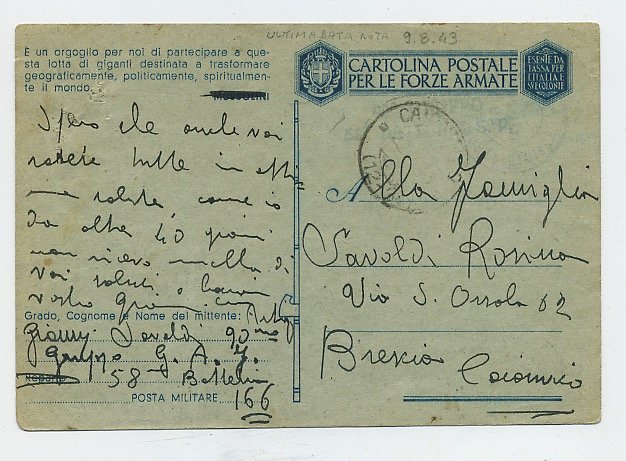 ULTIMA DATA NOTA 9.8.43
È un orgoglio per noi di partecipare a que-
sta lotta di giganti destinata a trasformare
geograficamente, politicamente, spiritualmen-
te il mondo.
MUSSOLINI
CARTOLINA POSTALE
PER LE FORZE ARMATE
ESENTE DA
TASSA PER
L'ITALIA E
SVE COLONIE
Spero che anche voi
sarete tutte in
salute come io
da oltre 40 giorni
non ricevo nulla di
voi saluti e bacioni
vostro
Grado, Cognome e Nome del mittente:
Gianni Savoldi 90mo
Gruppo G. A. F.
Reparto 58 Batteria
POSTA MILITARE 166
Alla Famiglia
Savoldi Rosina
Via S. Orsola 62
Brescia